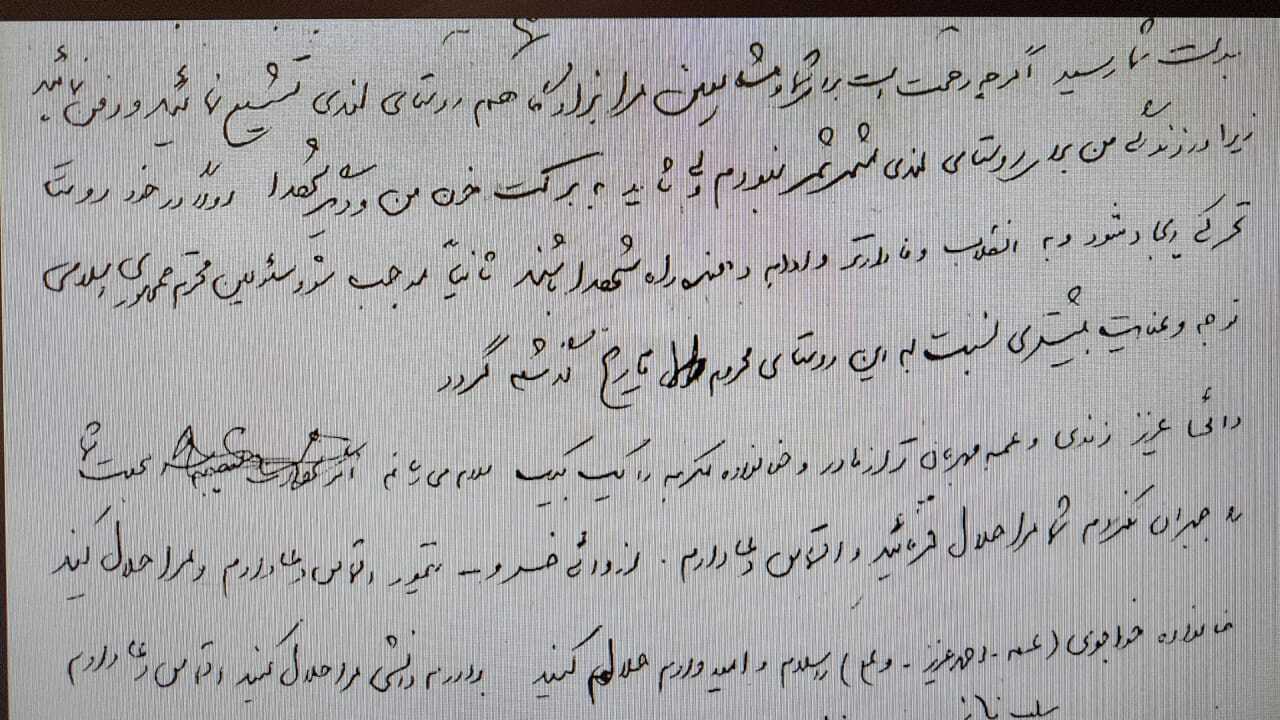 بدست شما رسید اگرچه زحمت است برای شما و مشایعین مرا برادرگاهم روستای لندی تشییع نمائید و دفن نمائید
زیرا در زندگی من برای روستای لندی مثمر ثمر نبودم ولی شاید به برکت خون من و دیگر شهدا اولاً در خود روستا
تحرکی ایجاد شود و به انقلاب وفادارتر و ادامه دهنده راه شهدا باشند ثانیاً موجب شود مسئولین محترم جمهوری اسلامی
توجه و عنایت بیشتری نسبت به این روستای محروم تاریخ گذشته گردد
دائی عزیز زندی و عمه مهربان تر از مادر و خانواده مکرمه را یک بیک سلام می‌رسانم اگر محبت شما
را جبران نکردم شما مرا حلال فرمائید و التماس دعا دارم. از دائی خسرو تیمور التماس دعا دارم و مرا حلال کنید
خانواده خواجوی (عمه - احمد عزیز - و عمو) را سلام و امید دارم حلالم کنید برادرم دانشی مرا حلال کنید التماس دعا دارم